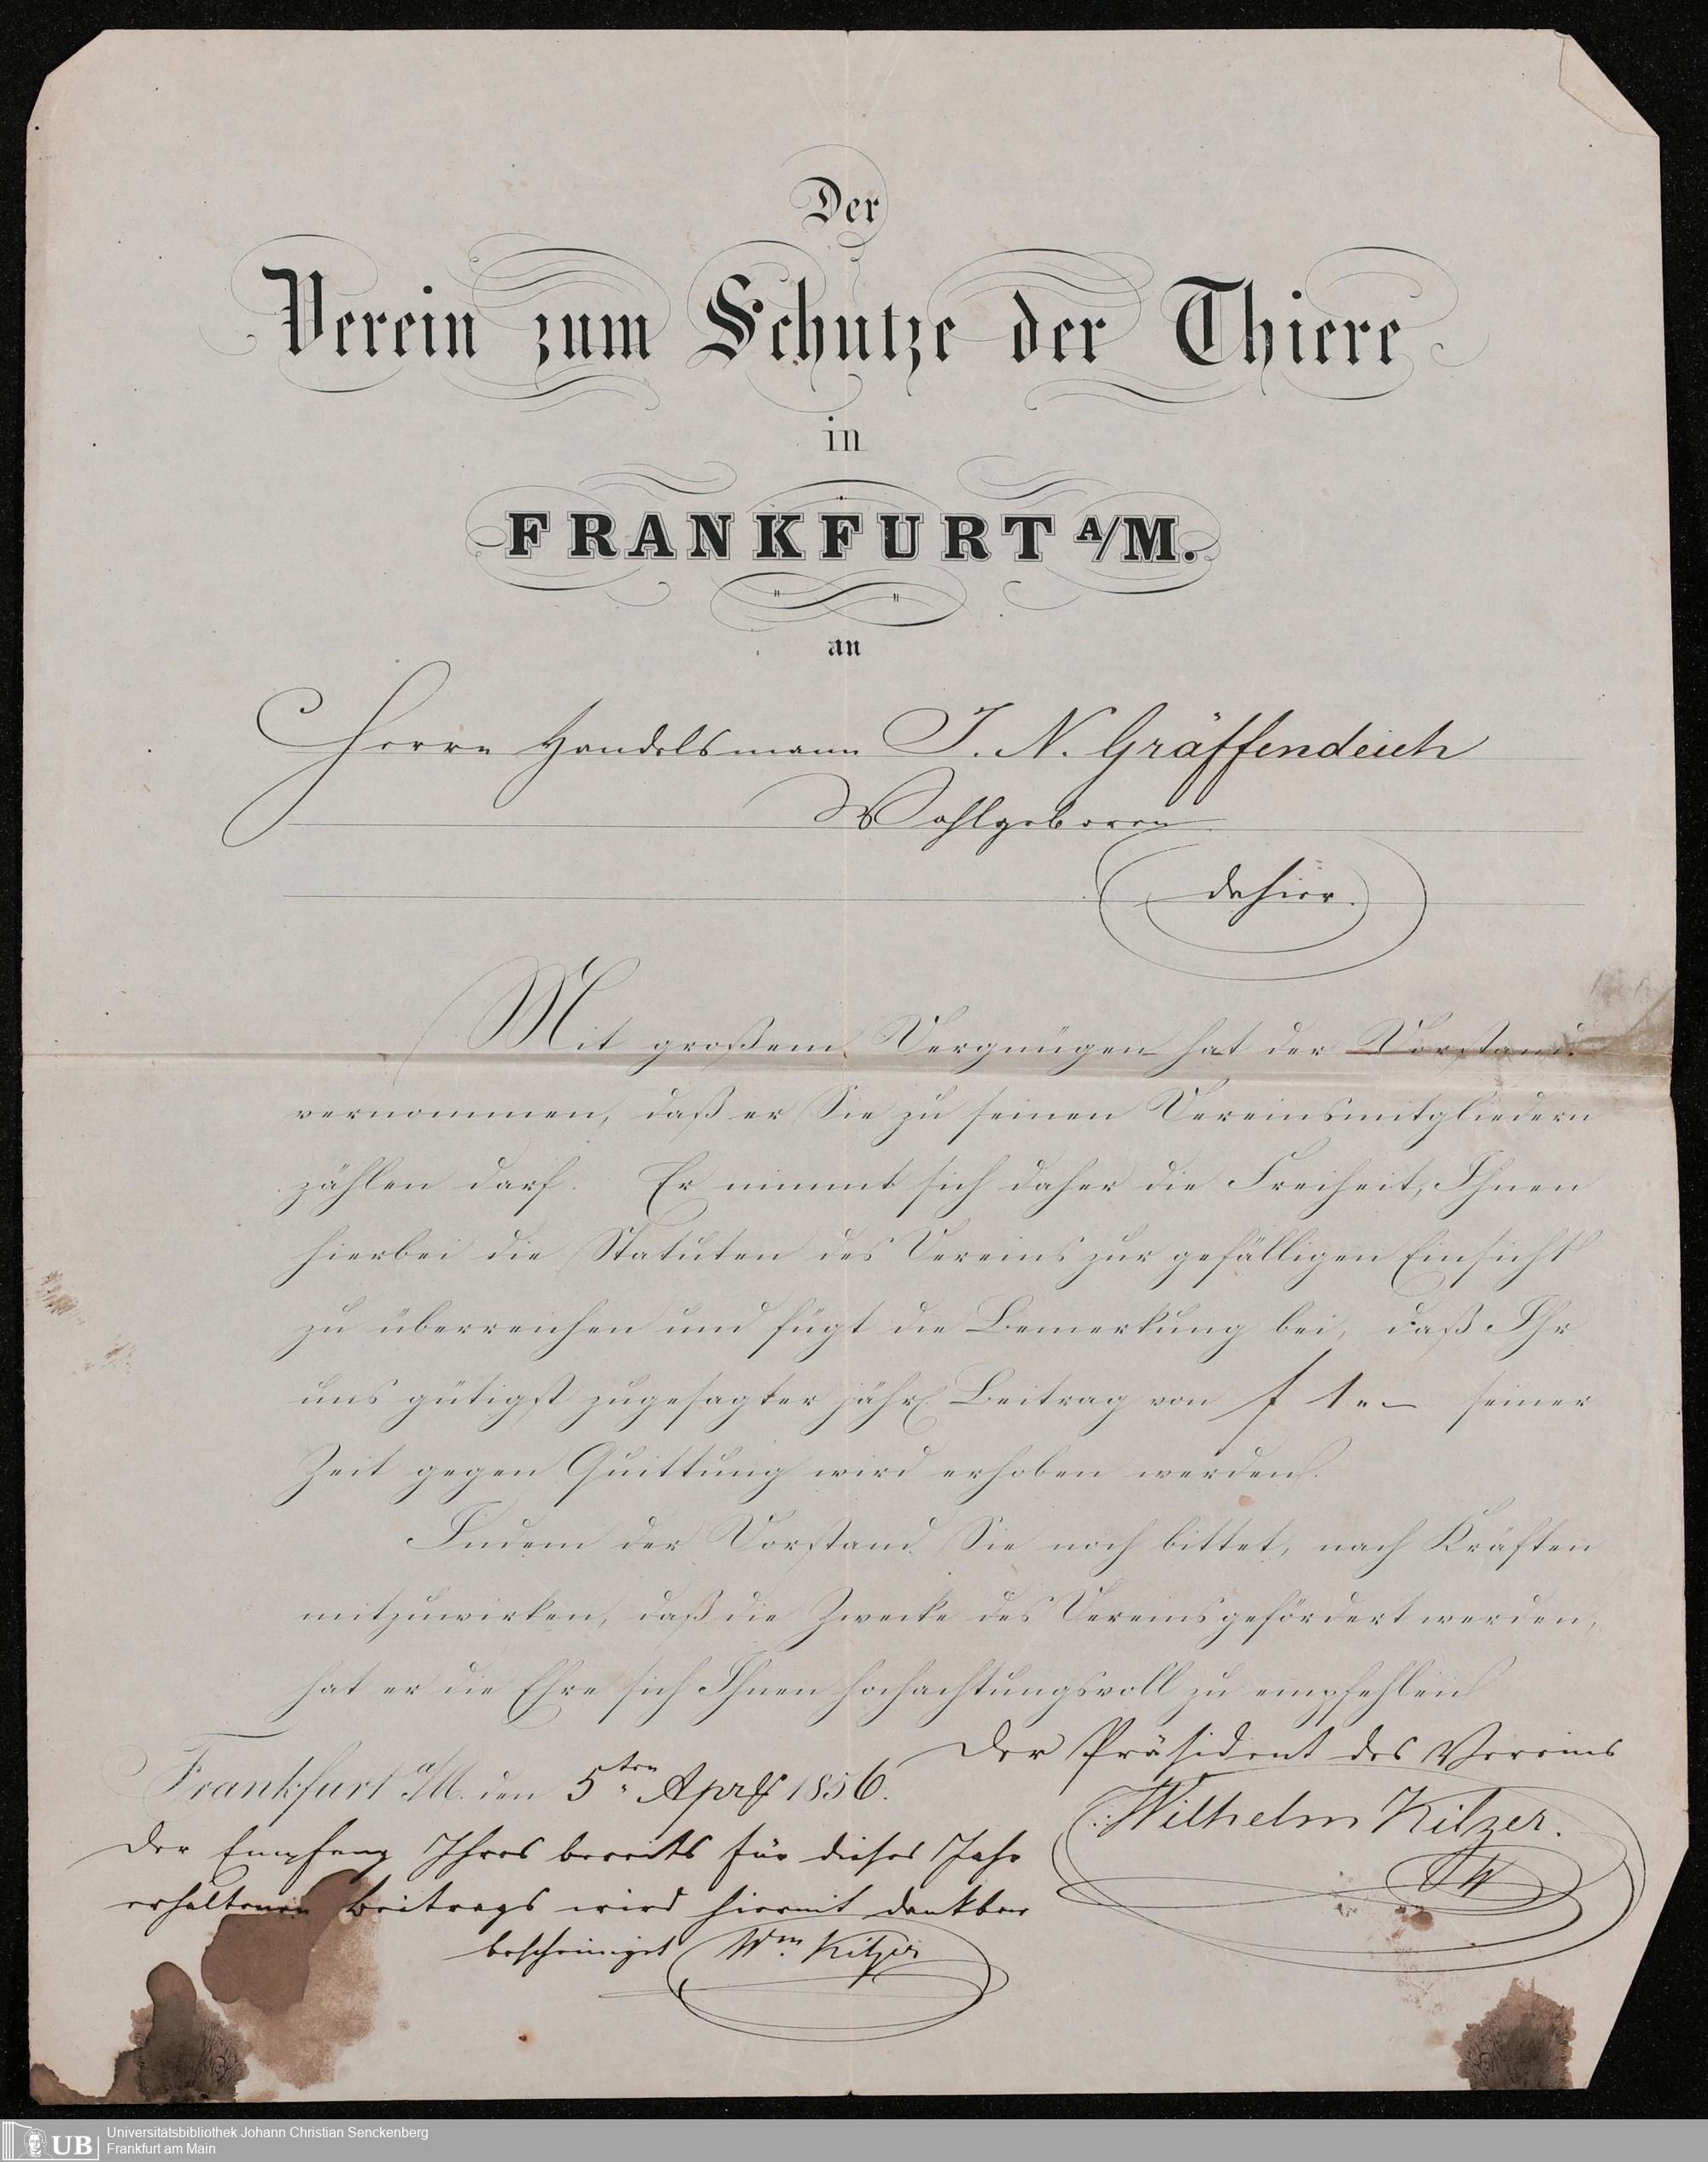 Der
Verein zum Schutze der Thiere
in
FRANKFURT A/M.
an
Herrn Handelsmann J. N. Gräffendeich
Wohlgeboren
dahier.
Mit großem Vergnügen hat der Vorstand
vernommen, daß er Sie zu seinen Vereinsmitgliedern
zählen darf. Er nimmt sich daher die Freiheit, Ihnen
hierbei die Statuten des Vereins zur gefälligen Einsicht
zu überreichen und fügt die Bemerkung bei, daß Ihr
uns gütigst zugesagter jährl. Beitrag von f 1.- seiner
Zeit gegen Quittung wird erhoben werden.
Indem der Vorstand Sie noch bittet, nach Kräften
mitzuwirken, daß die Zwecke des Vereins gefördert werden,
hat er die Ehre sich Ihnen hochachtungsvoll zu empfehlen
Der Präsident des Vereins
Frankfurt a/M. den 5ten April 1856.
Wilhelm Kilzer.
Der Empfang Ihres bereits für dieses Jahr
erhaltenen Beitrags wird hiermit dankbar
bescheiniget Wm. Kilzer
UB
Universitätsbibliothek Johann Christian Senckenberg
Frankfurt am Main